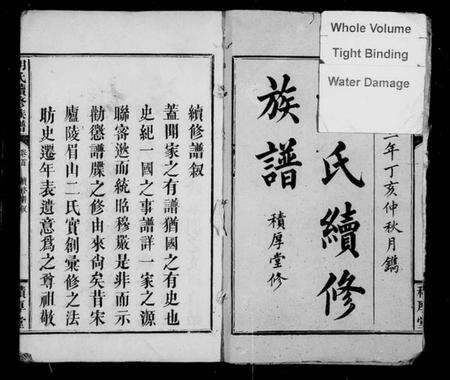 Whole Volume
Tight Binding
Water Damage
年丁亥仲秋月鐫
氏續修
族譜
積厚堂修
續修譜叙
蓋聞家之有譜猶國之有史也
史紀一國之事譜詳一家之源
聯寄遡而統昭穆嚴是非而示
勸懲譜牒之修由來尙矣昔宋
廬陵眉山二氏實創彙修之法
昉史遷年表遺意爲之尊祖敬
氏續修族譜
卷首
積厚堂
積厚堂